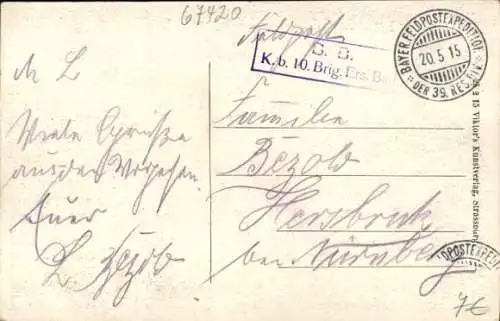 67420
Feldpost
S. B.
K. b. 10. Brig. Ers. B
BAYER. FELDPOSTEXPEDITION
20.5.15
* DER 39. RES. DIV. *
M L
Viele Grüsse
aus den Vogesen
Euer
L. Bezold
Familie
Bezold
Hersbruck
bei Nürnberg
15 Viktor's Kunstverlag, Strassburg
DPOSTEXPED
7€